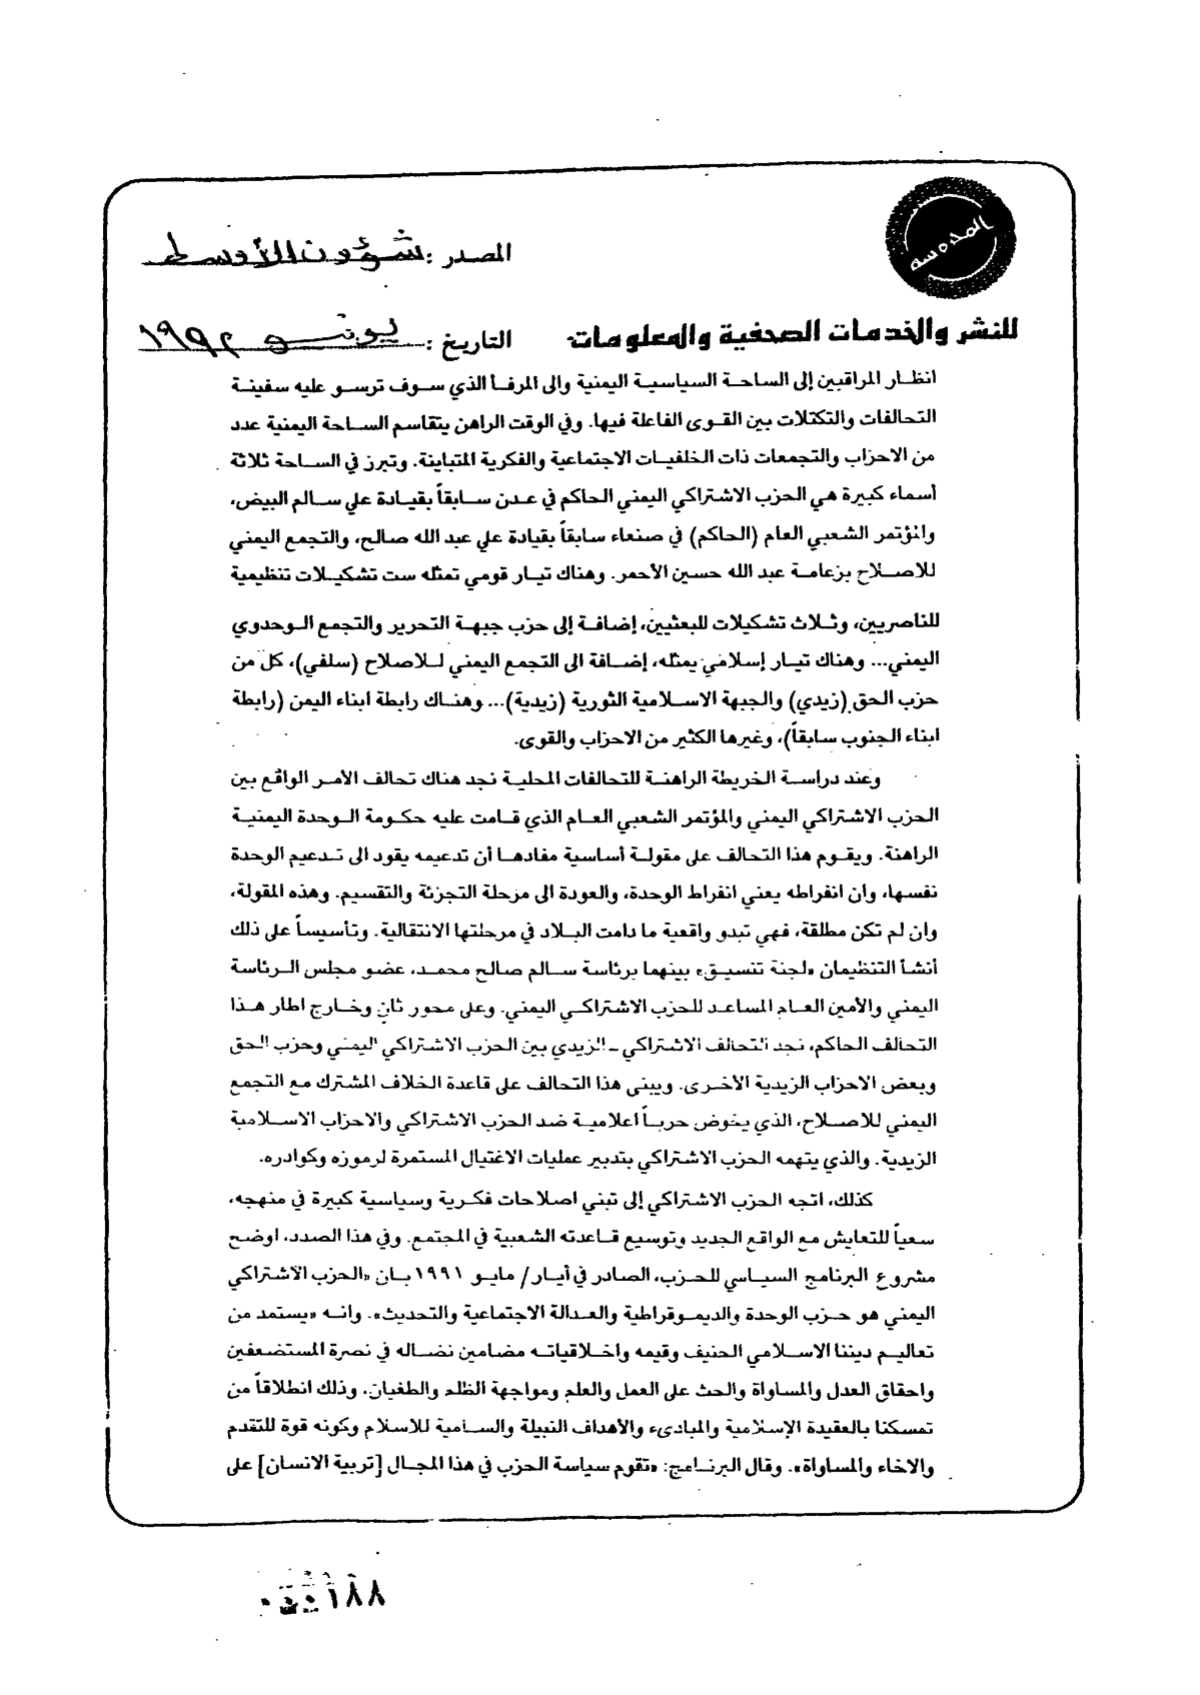 المصدر : شؤون الأوسط
للنشر والخدمات الصحفية والمعلومات
التاريخ : يونيو ١٩٩٢
انظار المراقبين إلى الساحة السياسية اليمنية والى المرفأ الذي سوف ترسو عليه سفينة
التحالفات والتكتلات بين القوى الفاعلة فيها. وفي الوقت الراهن يتقاسم الساحة اليمنية عدد
من الاحزاب والتجمعات ذات الخلفيات الاجتماعية والفكرية المتباينة. وتبرز في الساحة ثلاثة
أسماء كبيرة هي الحزب الاشتراكي اليمني الحاكم في عدن سابقاً بقيادة علي سالم البيض،
والمؤتمر الشعبي العام (الحاكم) في صنعاء سابقاً بقيادة علي عبد الله صالح، والتجمع اليمني
للاصلاح بزعامة عبد الله حسين الأحمر. وهناك تيار قومي تمثله ست تشكيلات تنظيمية
للناصريين، وثلاث تشكيلات للبعثيين، إضافة إلى حزب جبهة التحرير والتجمع الوحدوي
اليمني... وهناك تيار إسلامي يمثله، إضافة الى التجمع اليمني للاصلاح (سلفي)، كل من
حزب الحق (زيدي) والجبهة الاسلامية الثورية (زيدية)... وهناك رابطة ابناء اليمن (رابطة
ابناء الجنوب سابقاً)، وغيرها الكثير من الاحزاب والقوى.
وعند دراسة الخريطة الراهنة للتحالفات المحلية نجد هناك تحالف الأمر الواقع بين
الحزب الاشتراكي اليمني والمؤتمر الشعبي العام الذي قامت عليه حكومة الوحدة اليمنية
الراهنة. ويقوم هذا التحالف على مقولة أساسية مفادها أن تدعيمه يقود الى تدعيم الوحدة
نفسها، وان انفراطه يعني انفراط الوحدة، والعودة الى مرحلة التجزئة والتقسيم. وهذه المقولة،
وان لم تكن مطلقة، فهي تبدو واقعية ما دامت البلاد في مرحلتها الانتقالية. وتأسيساً على ذلك
أنشأ التنظيمان «لجنة تنسيق» بينهما برئاسة سالم صالح محمد، عضو مجلس الرئاسة
اليمني والأمين العام المساعد للحزب الاشتراكي اليمني. وعلى محور ثان وخارج اطار هذا
التحالف الحاكم، نجد التحالف الاشتراكي ـ الزيدي بين الحزب الاشتراكي اليمني وحزب الحق
وبعض الاحزاب الزيدية الأخرى. ويبنى هذا التحالف على قاعدة الخلاف المشترك مع التجمع
اليمني للاصلاح، الذي يخوض حرباً اعلامية ضد الحزب الاشتراكي والاحزاب الاسلامية
الزيدية. والذي يتهمه الحزب الاشتراكي بتدبير عمليات الاغتيال المستمرة لرموزه وكوادره.
كذلك، اتجه الحزب الاشتراكي إلى تبني اصلاحات فكرية وسياسية كبيرة في منهجه،
سعياً للتعايش مع الواقع الجديد وتوسيع قاعدته الشعبية في المجتمع. وفي هذا الصدد، اوضح
مشروع البرنامج السياسي للحزب، الصادر في أيار/ مايو ١٩٩١ بان «الحزب الاشتراكي
اليمني هو حزب الوحدة والديموقراطية والعدالة الاجتماعية والتحديث». وانه «يستمد من
تعاليم ديننا الاسلامي الحنيف وقيمه واخلاقياته مضامين نضاله في نصرة المستضعفين
واحقاق العدل والمساواة والحث على العمل والعلم ومواجهة الظلم والطغيان. وذلك انطلاقاً من
تمسكنا بالعقيدة الإسلامية والمبادىء والأهداف النبيلة والسامية للاسلام وكونه قوة للتقدم
والاخاء والمساواة». وقال البرنامج: «تقوم سياسة الحزب في هذا المجال [تربية الانسان] على